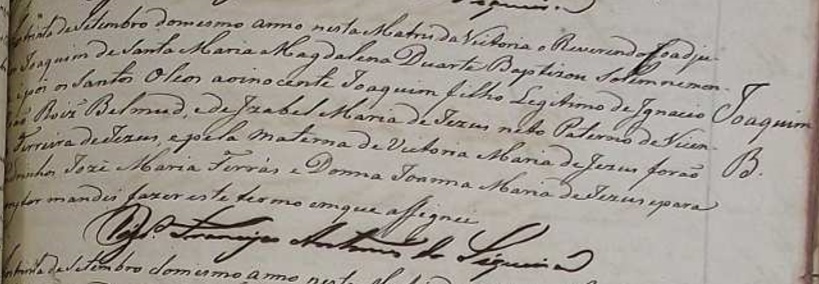 trinta de Setembro do mesmo anno nesta Matris da Victoria o Reverendo Coadju-
Joaquim de Santa Maria Magdalena Duarte Baptizou Solemnemen-
e pôs os Santos Oleos ao inocente Joaquim filho Legitimo de Ignacio
Roiz Belmud, e de Izabel Maria de Jezus neto Paterno de Vicen-
Ferreira de Jezus, e pela materna de Victoria Maria de Jezus forão
drinhos Jozé Maria Ferrás e Donna Joanna Maria de Jezus e para
mandei fazer este termo em que assignei
Francisco Antonio de Siqueira
trinta de Setembro do mesmo anno nesta
Joaquim
B.